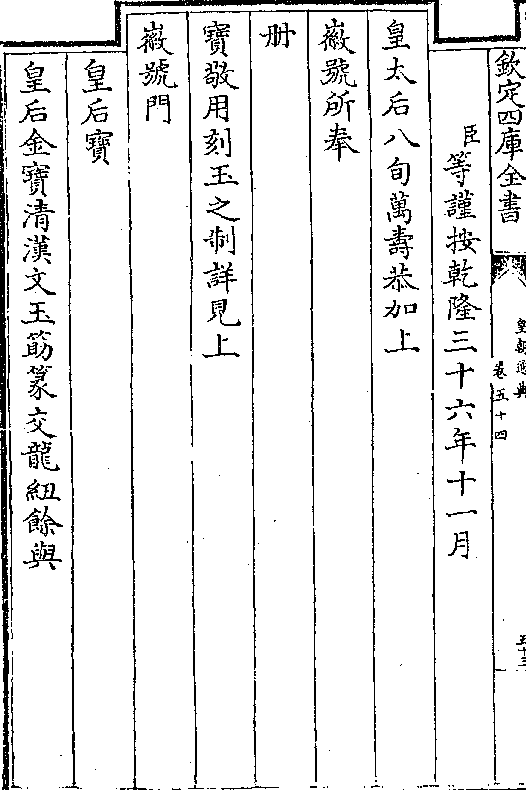 欽定四庫全書
皇朝通典
卷五十四
臣等謹按乾隆三十六年十一月
皇太后八旬萬壽恭加上
徽號所奉
册
寶敬用刻玉之制詳見上
徽號門
皇后寶
皇后金寶清漢文玉筯篆交龍紐餘與